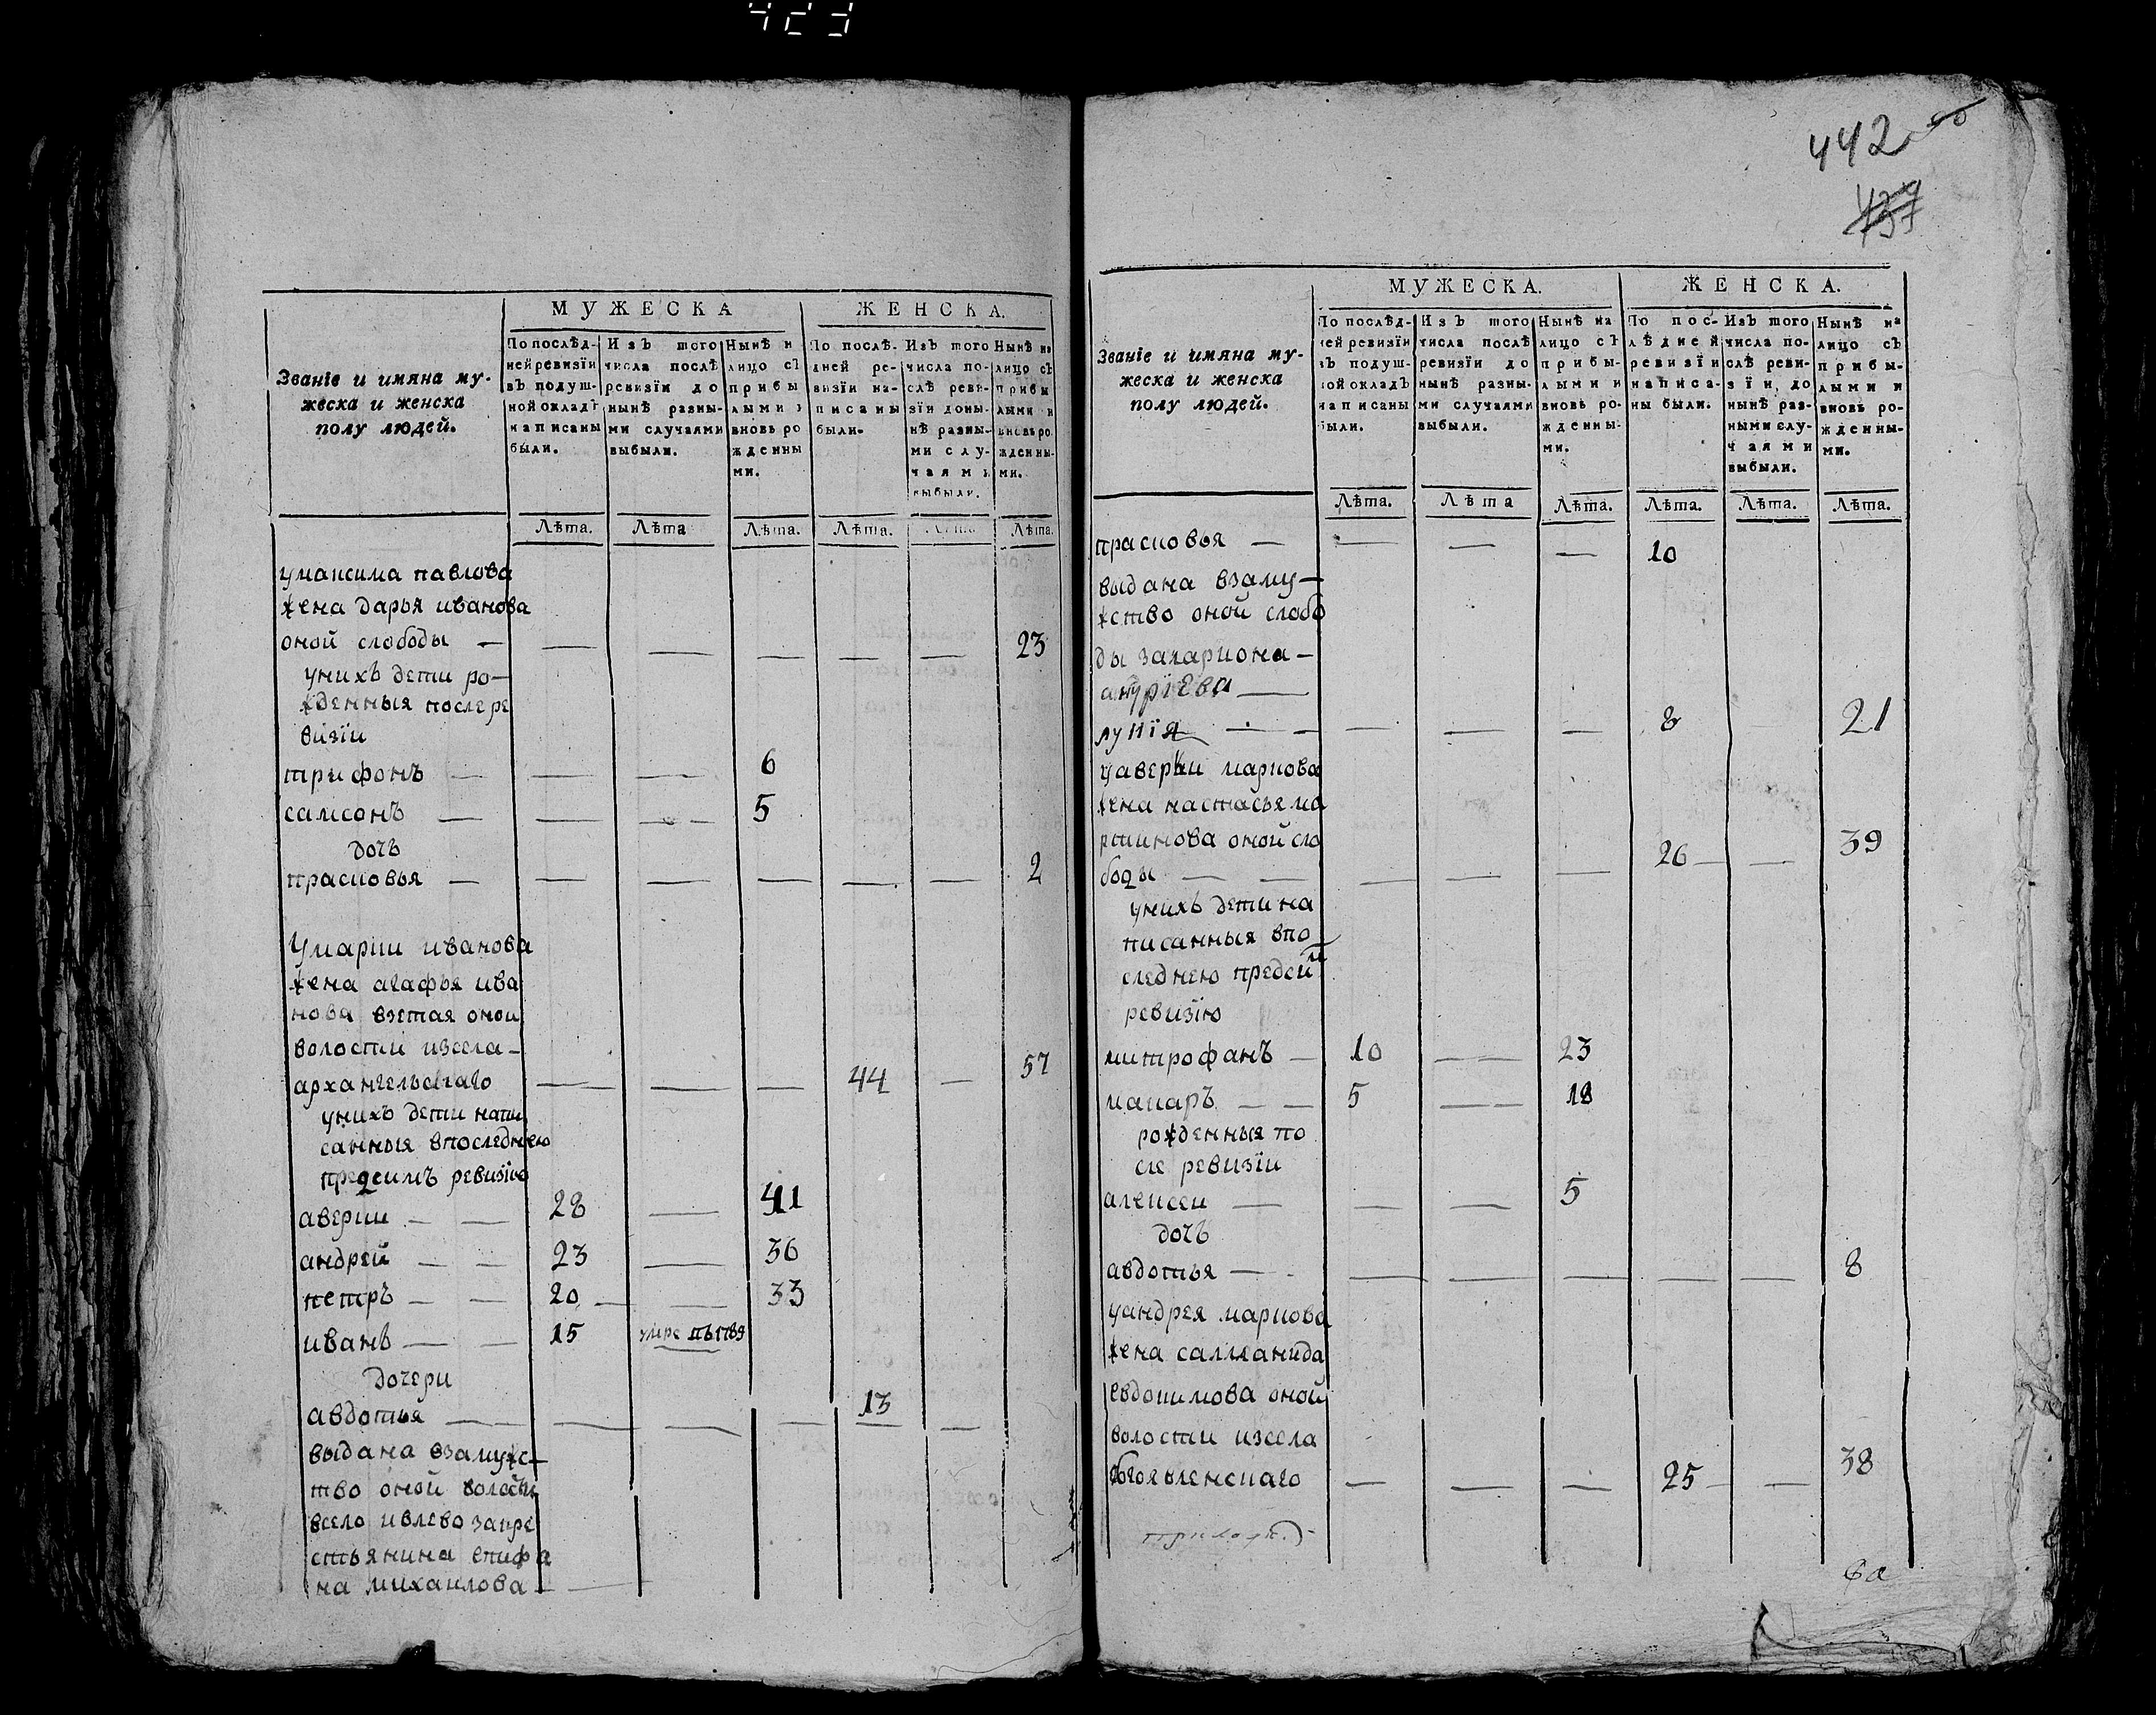 423
МУЖЕСКА
ЖЕНСКА.
Званіе и имяна му-
жеска и женска
полу людей.
По послѣд-
ней ревизіи
въ подуш-
ной окладъ
написаны
были.
Изъ того
числа послѣ
ревизіи до
нынѣ разны-
ми случаями
выбыли.
Нынѣ н
лицо съ
прибы
лыми
вновь ро
жденны
ми.
По послѣ-
дней ре-
визіи на-
писаны
были.
Изъ того
числа по-
слѣ реви-
зіи доны-
нѣ разны-
ми слу-
чаями
выбыли.
Нынѣ на
лицо съ
прибы
лыми и
вновь ро
жденны-
ми.
Лѣта. Лѣта Лѣта. Лѣта. Лѣта Лѣта.
умаксима павлова
жена дарья иванова
оной слободы — — — — — — 23
унихъ дети ро-
жденныя после ре
визїи
трифонъ — — — 6
самсонъ — — — 5
дочь
прасковья — — — — — — 2
Умарки иванова
жена агафья ива
нова взетая оной
волости изсела-
архангельскаго — — — 44 — 57
унихъ дети напи
санныя впоследнею
предсимъ ревизїю
аверки — — 28 — 41
андрей — — 23 — 36
петръ — — 20 — — 33
иванъ — — 15
дочери
авдотья — — — — 13 —
выдана взамужс-
тво оной волости
всело ивлево закре
стьянина епифа
на михаилова —
442
437
МУЖЕСКА.
ЖЕНСКА.
Званіе и имяна му-
жеска и женска
полу людей.
По послѣд-
ней ревизіи
въ подуш-
ной окладъ
написаны
были.
Изъ того
числа послѣ
ревизіи до
нынѣ разны-
ми случаями
выбыли.
Нынѣ на
лицо съ
прибы-
лыми и
вновь ро-
жденны-
ми.
По пос-
лѣдней
ревизіи
написа-
ны были.
Изъ того
числа по-
слѣ реви-
зіи до
нынѣ раз-
ными слу-
чаями
выбыли.
Нынѣ на
лицо съ
прибы-
лыми и
вновь ро-
жденны-
ми.
Лѣта. Лѣта Лѣта. Лѣта. Лѣта. Лѣта.
прасковья — — — — 10
выдана взаму-
жство оной слобо
ды захариона-
— — — 8 — 21
уаверки маркова
жена настасья ма
ртинова оной сло
боды — — — — — 26 — — 39
унихъ дети на
писанныя впо
следнею предсим
ревизїю
митрофанъ — 10 — 23
макаръ — — 5 — 18
рожденныя по
сле ревизїи
алексеи — — — 5
дочь
авдотья — — — — — — 8
уандрея маркова
жена
евдокимова оной
волости изсела
богоявленскаго — — — 25 — — 38